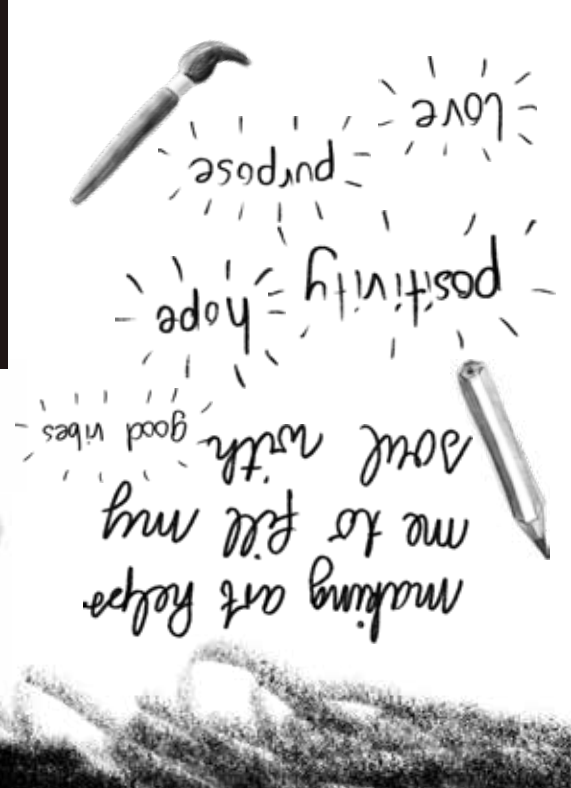 making art helps
me to fill my
soul with
good vibes
hope
positivity
purpose
Love